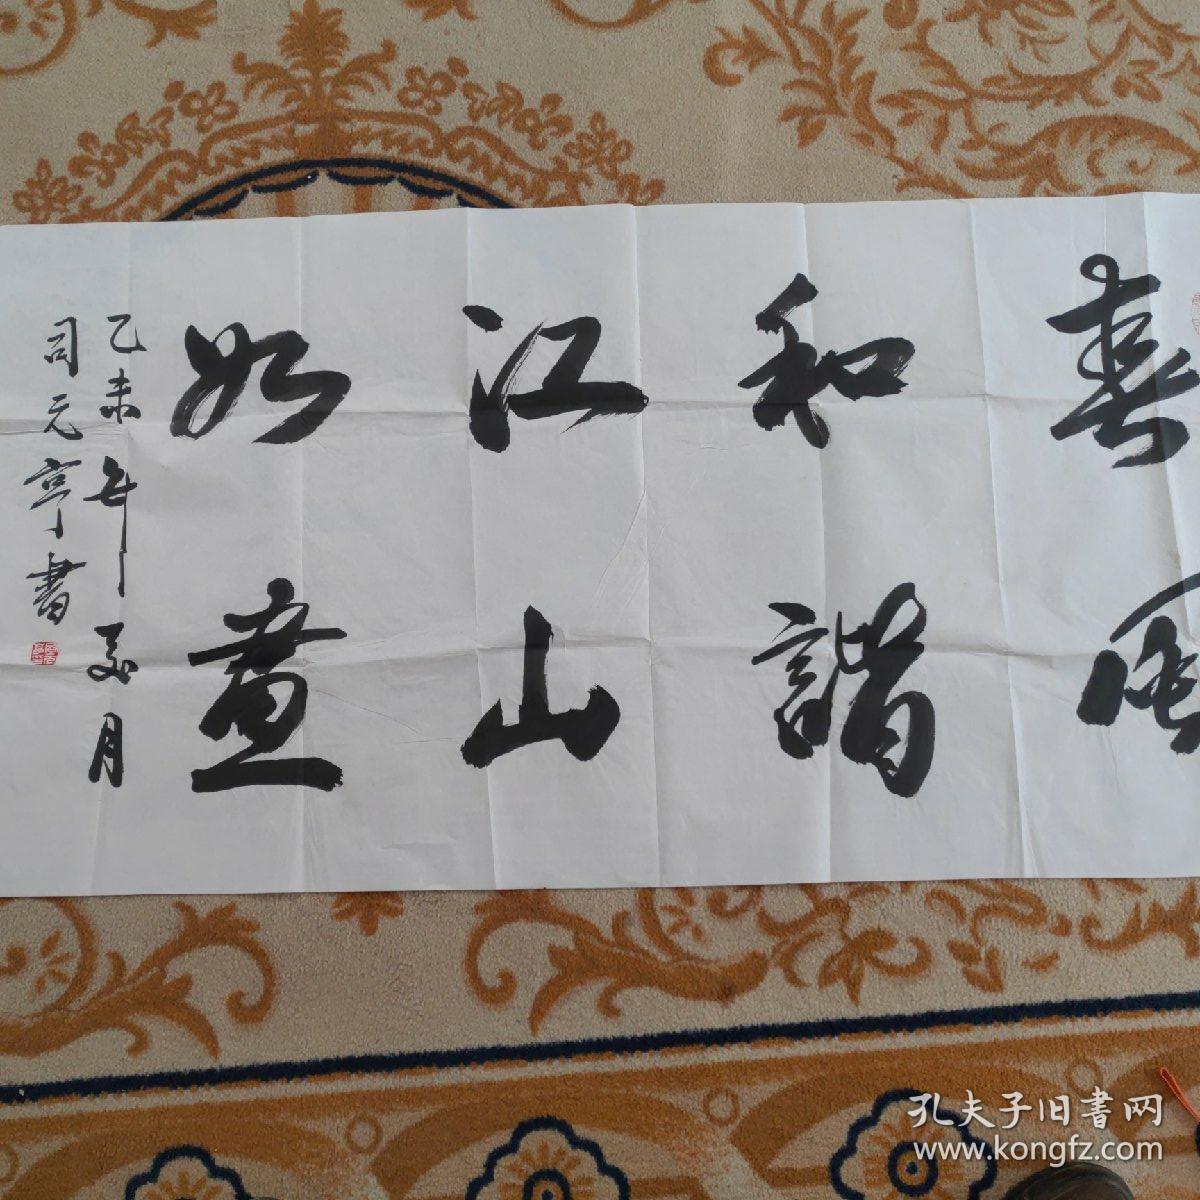 春風
和諧
江山
如畫
乙未年夏月
司元亨書
孔夫子旧書网
www.kongfz.com